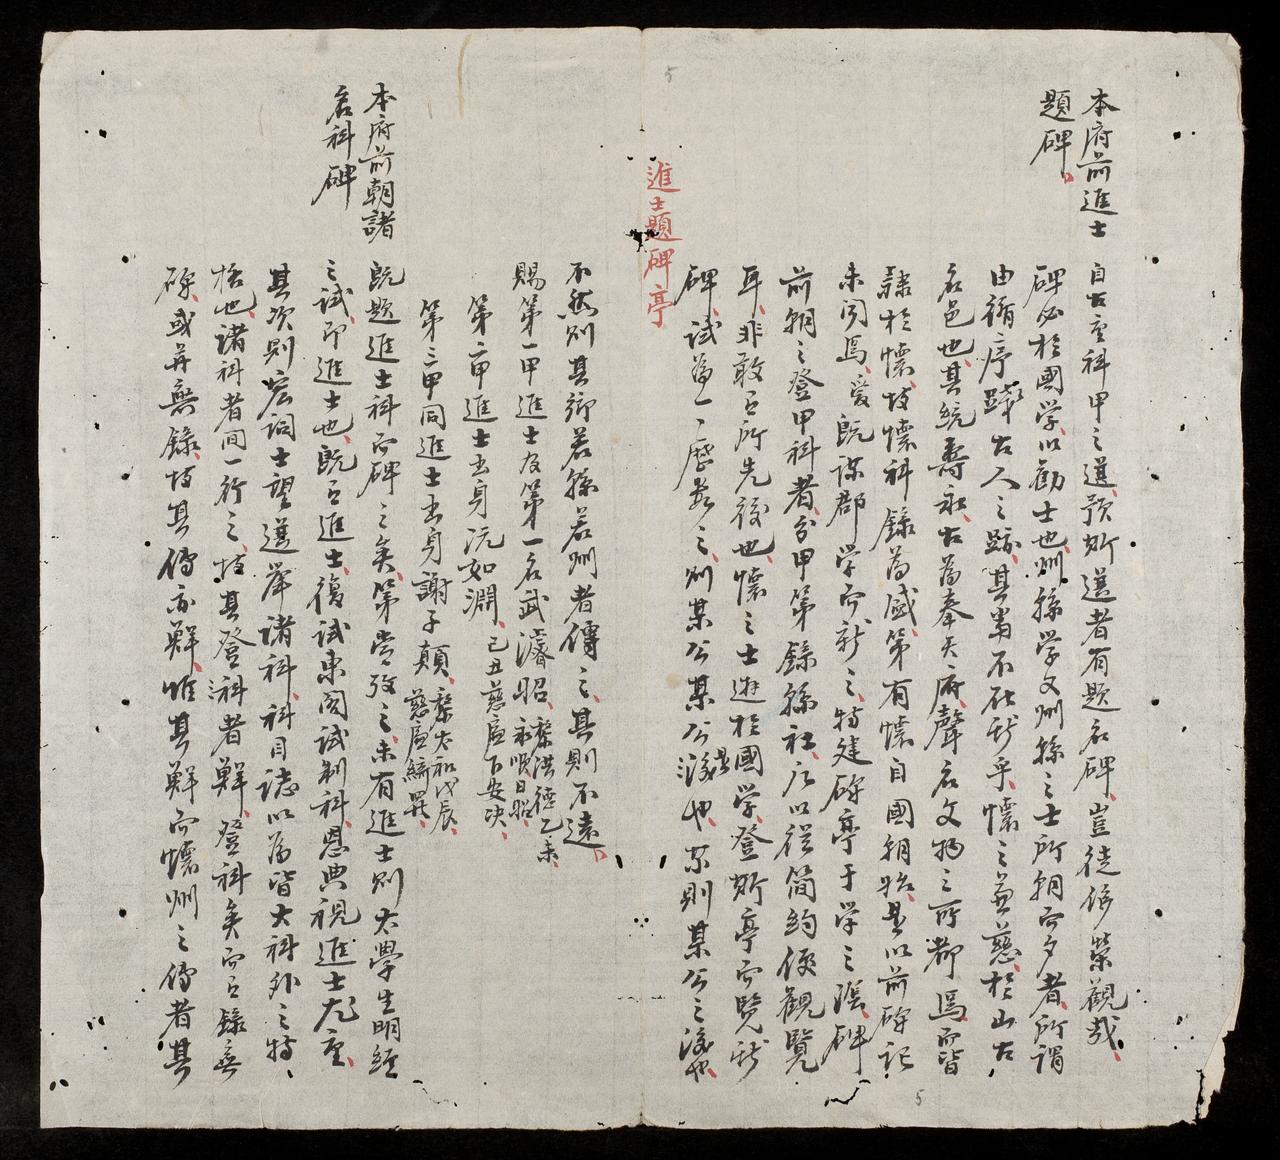 本府前進士
題碑
自古重科甲之選預斯選者有題名碑豈徒侈榮觀哉
碑必於國学以勸士也州縣学又州縣之士所朝而夕者所謂
由循序踐古人之跡其嵩不在斯乎懷之爲慈於山古
名邑也其統壽永古為奉天府聲名文物之所都焉而皆
隸於懷故懷科錄為盛第有懷自國朝始是以前碑記
未聞焉爰既謀郡学而新之特建碑亭于学之陰碑
前朝之登甲科者分甲第錄縣社所以從簡約便觀覽
耳非敢有所先後也懷之士遊於國学登斯亭而覽斯
碑試爲一一歷數之則某公某公後也某則某公之後也
進士題碑亭
不然則其鄉若縣若州者傳之其則不遠
賜第一甲進士及第一名武濬昭 黎洪德乙未 永順日昭
第二甲進士出身阮如淵 己丑慈廉下安决
第三甲同進士出身謝子顛 黎太和戊辰 慈廉編巽
本府前朝諸
名科碑
既題進士科而碑之矣第嘗攷之未有進士則太學生明經
之試即進士也既有進士復試東閣試制科恩典視進士尤重
其次則宏詞士望選舉諸科科目誌以為皆大科外之特
格也諸科者间一行之故其登科者鮮登科矣而有錄無
碑或并無錄故其傳亦鮮惟其鮮而懷州之傳者其